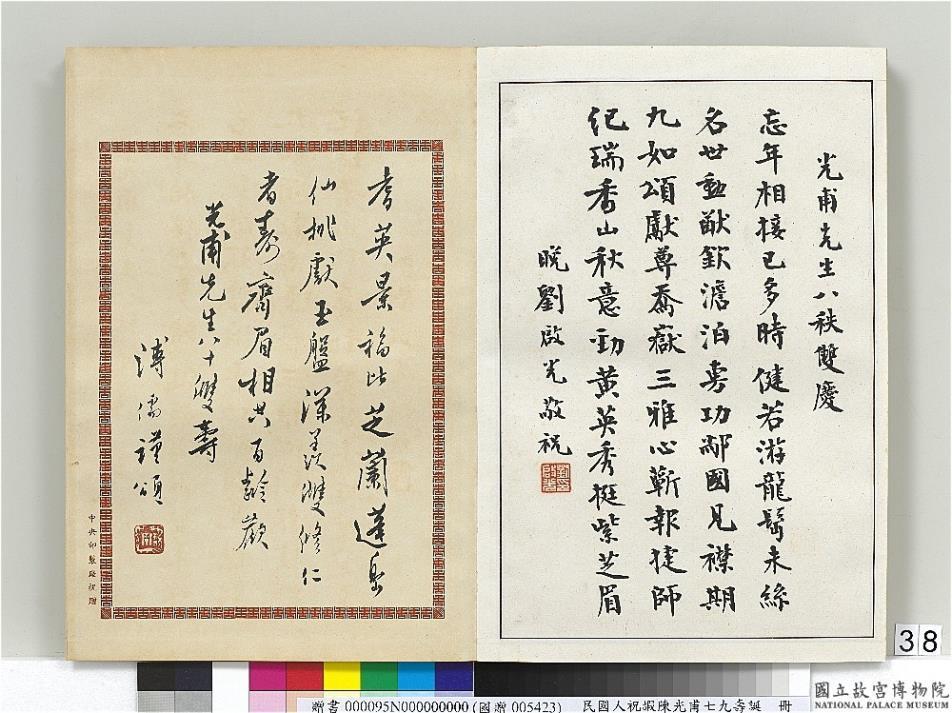 光甫先生八秩雙慶
忘年相接已多時健若游龍鬢未絲
名世勳猷欽澹泊功鄰國見襟期
九如頌獻尊喬嶽三雅心蘄報捷師
紀瑞香山秋意勁黃英秀挺紫芝眉
晚劉啟光敬祝
耆英景福比芝蘭蓬島
仙桃獻玉盤深羨雙修仁
者壽齊眉相共百齡歡
光甫先生八十雙壽
溥儒謹頌
中央印製廠祝贈
38
贈書 000095N000000000 (國贈 005423) 民國人祝嘏陳光甫七九壽誕 冊
國立故宮博物院
NATIONAL PALACE MUSEUM